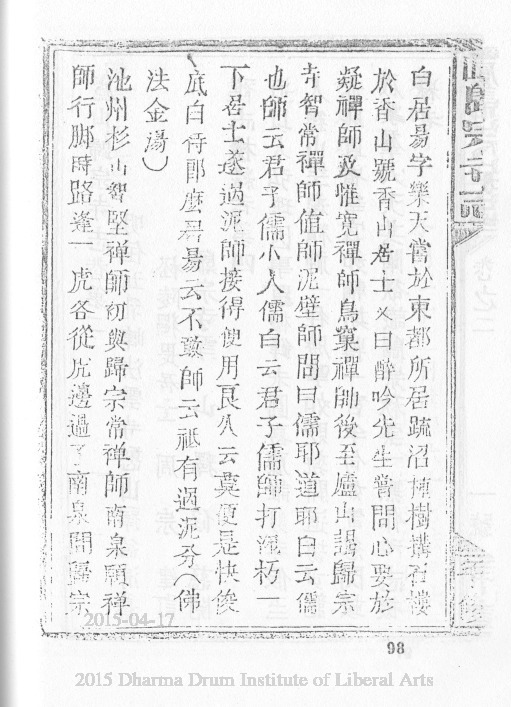 白居易字樂天嘗於東都所居疏沼種樹搆石樓
於香山號香山居士又曰醉吟先生嘗問心要於
凝禪師及惟寬禪師鳥窠禪師後至廬山謁歸宗
寺智常禪師值師泥壁師問曰儒耶道耶白云儒
也師云君子儒小人儒白云君子儒師打泥杇一
下居士遂過泥師接得便用良久云莫便是快俊
底白侍郎麼居易云不敢師云祗有過泥分（佛
法金湯）
池州杉山智堅禅師初與歸宗常禅師南泉願禅
師行脚時路逢一虎各從虎邊過了南泉問歸宗
卷之二
2015-04-17
98
2015 Dharma Drum Institute of Liberal Arts